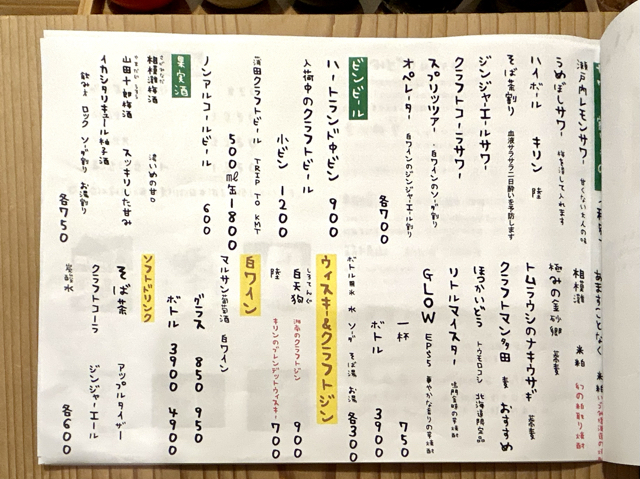 瀬戸内レモンサワー 甘くない大人の味
うめぼしサワー 梅を潰して入れます
ハイボール キリン 陸
そば茶割り 血液サラサラ二日酔いを予防します
ジンジャーエールサワー
クラフトコーラサワー
スプリッツァー 白ワインのソーダ割り
オペレーター 白ワインのジンジャーエール割り
各700
ビンビール
ハートランド中ビン 900
入荷中のクラフトビール
小ビン 1200
蒲田クラフトビール TRIP TO KMT
500ml缶 1800
ノンアルコールビール 600
果実酒
相模灘梅酒 濃いめの甘口
山田十郎梅酒 スッキリした甘み
イカシタリキュール柚子酒
飲み方 ロック ソーダ割り お湯割り
各750
相模灘 米粕 幻の粕取り焼酎
極みの金砂郷 蕎麦
トムラウシのナキウサギ 蕎麦
クラフトマン多田 麦 おすすめ
ほっかいどう トウモロコシ 北海道限定品
リトルマイスター 鳴門金時の芋焼酎
GLOW EP55 華やかな香りの芋焼酎
一杯 750
ボトル 3900
水 ソーダ そば湯 お湯 各300
ウィスキー&クラフトジン
白天狗 湘南のクラフトジン 900
陸 キリンのブレンデッドウィスキー 700
白ワイン
マルサン葡萄酒 白ワイン
グラス 850 950
ボトル 3900 4900
ソフトドリンク
そば茶 アップルタイザー
クラフトコーラ ジンジャーエール
炭酸水
各600